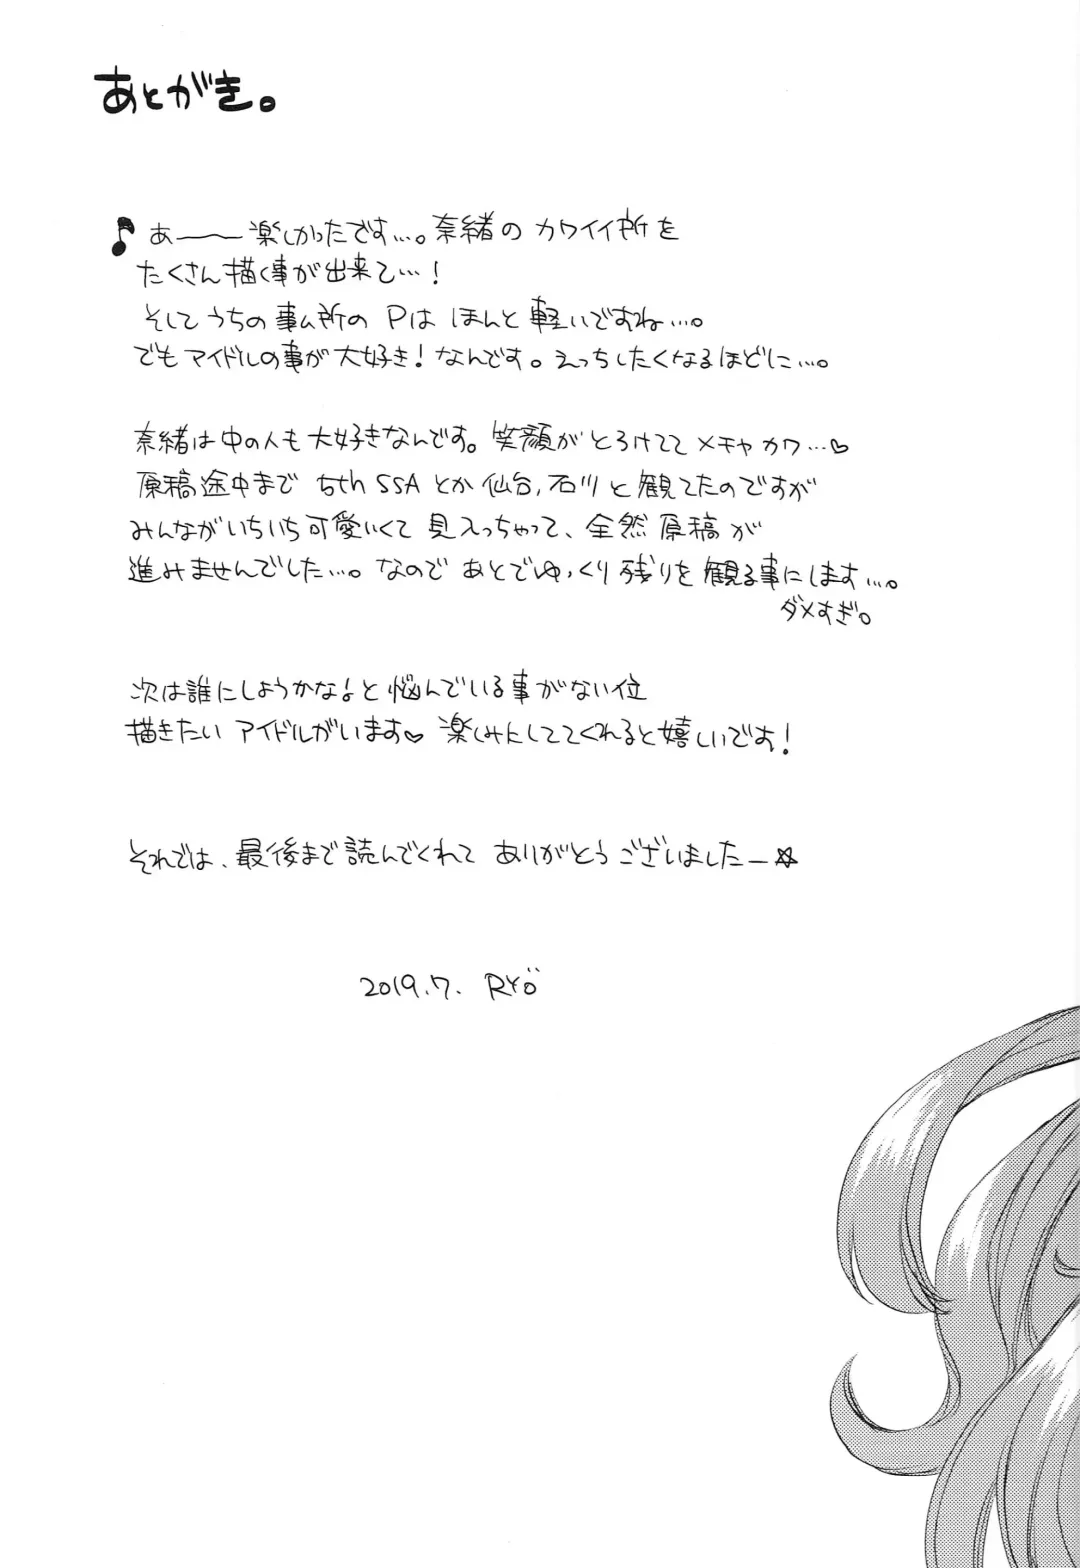 あとがき。
♪ あー――楽しかったです…。奈緒のカワイイ所を
たくさん描く事が出来て…!
そしてうちの事ム所のPはほんと軽いですね…。
でもアイドルの事が大好き!なんです。えっちしたくなるほどに…。
奈緒は中の人も大好きなんです。笑顔がとろけててメチャカワ…♡
原稿途中まで 5th SSAとか仙台,石川と観てたのですが
みんながいちいち可愛いくて見入っちゃって、全然原稿が
進みませんでした…。なのであとでゆっくり残りを観る事にします…。
ダメすぎ。
次は誰にしようかな♪と悩んでいる事がない位
描きたいアイドルがいます♡楽しみにしててくれると嬉しいです!
それでは、最後まで読んでくれてありがとうございましたー☆
2019.7. RYÖ